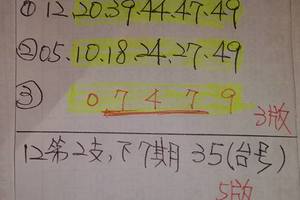 ① 12.20.39.44.47.49
② 05.10.18.24.27.49
③ 0 7 4 7 9
3版
12第2支,下7期月 35(台号)
5版